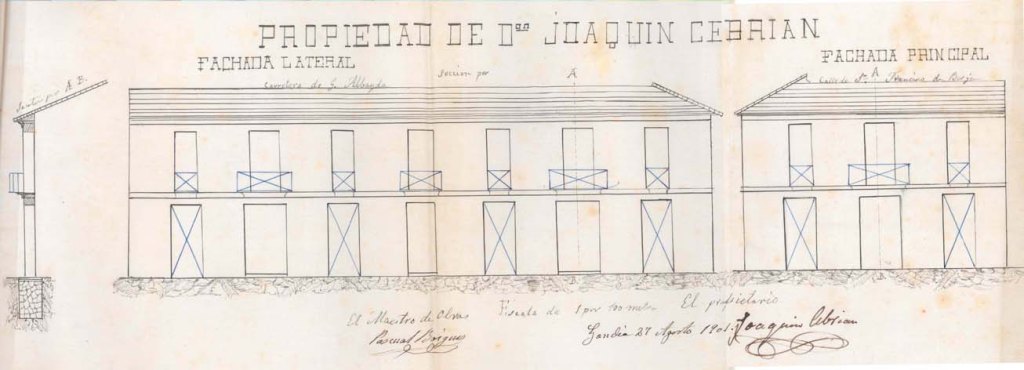 PROPIEDAD DE Dⁿ JOAQUIN CEBRIAN
FACHADA LATERAL
Carretera de G. Albayda
Seccion por A
Seccion por A B.
FACHADA PRINCIPAL
Calle de Sⁿ Francisco de Borja
A
El Maestro de Obras
Pascual
Escala de 1 por 100 metros
Gandia 27 Agosto 1901.
El propietario
Joaquin Cebrian